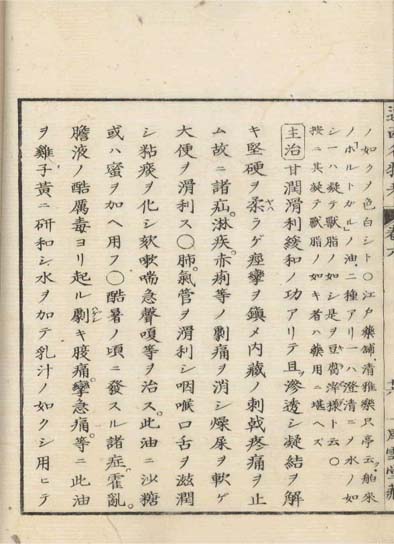 ノ如クソ色白シト〇江戸藥鋪清雅樂只亭云舶來
ノ「ホルトガル」ノ油二種アリ一ハ澄清ニノ水ノ如
シ一ハ凝テ獸脂ノ如シ是ヲ豆蔲滓様ト云〇
按ニ其凝テ獸脂ノ如キ者ハ藥用ニ堪ヘズ
主治 甘潤滑利緩和ノ功アリテ且滲透シ凝結ヲ解
キ堅硬ヲ柔ラゲ痙攣ヲ鎮メ内藏ノ刺戟疼痛ヲ止
ム故ニ諸疝。淋疾。赤痢等ノ劇痛ヲ消シ燥屎ヲ軟ゲ
大便ヲ滑利ス〇肺。氣管ヲ滑利シ咽喉口舌ヲ滋潤
シ粘痰ヲ化シ欬嗽喘急聲嗄等ヲ治ス。此油ニ沙糖
或ハ蜜ヲ加ヘ用フ〇酷暑ノ頃ニ發スル諸症。霍亂。
膽液ノ酷厲毒ヨリ起ル劇キ腹痛。攣急痛。等ニ此油
ヲ雞子黃ニ研和シ水ヲ加テ乳汁ノ如クシ用ヒテ